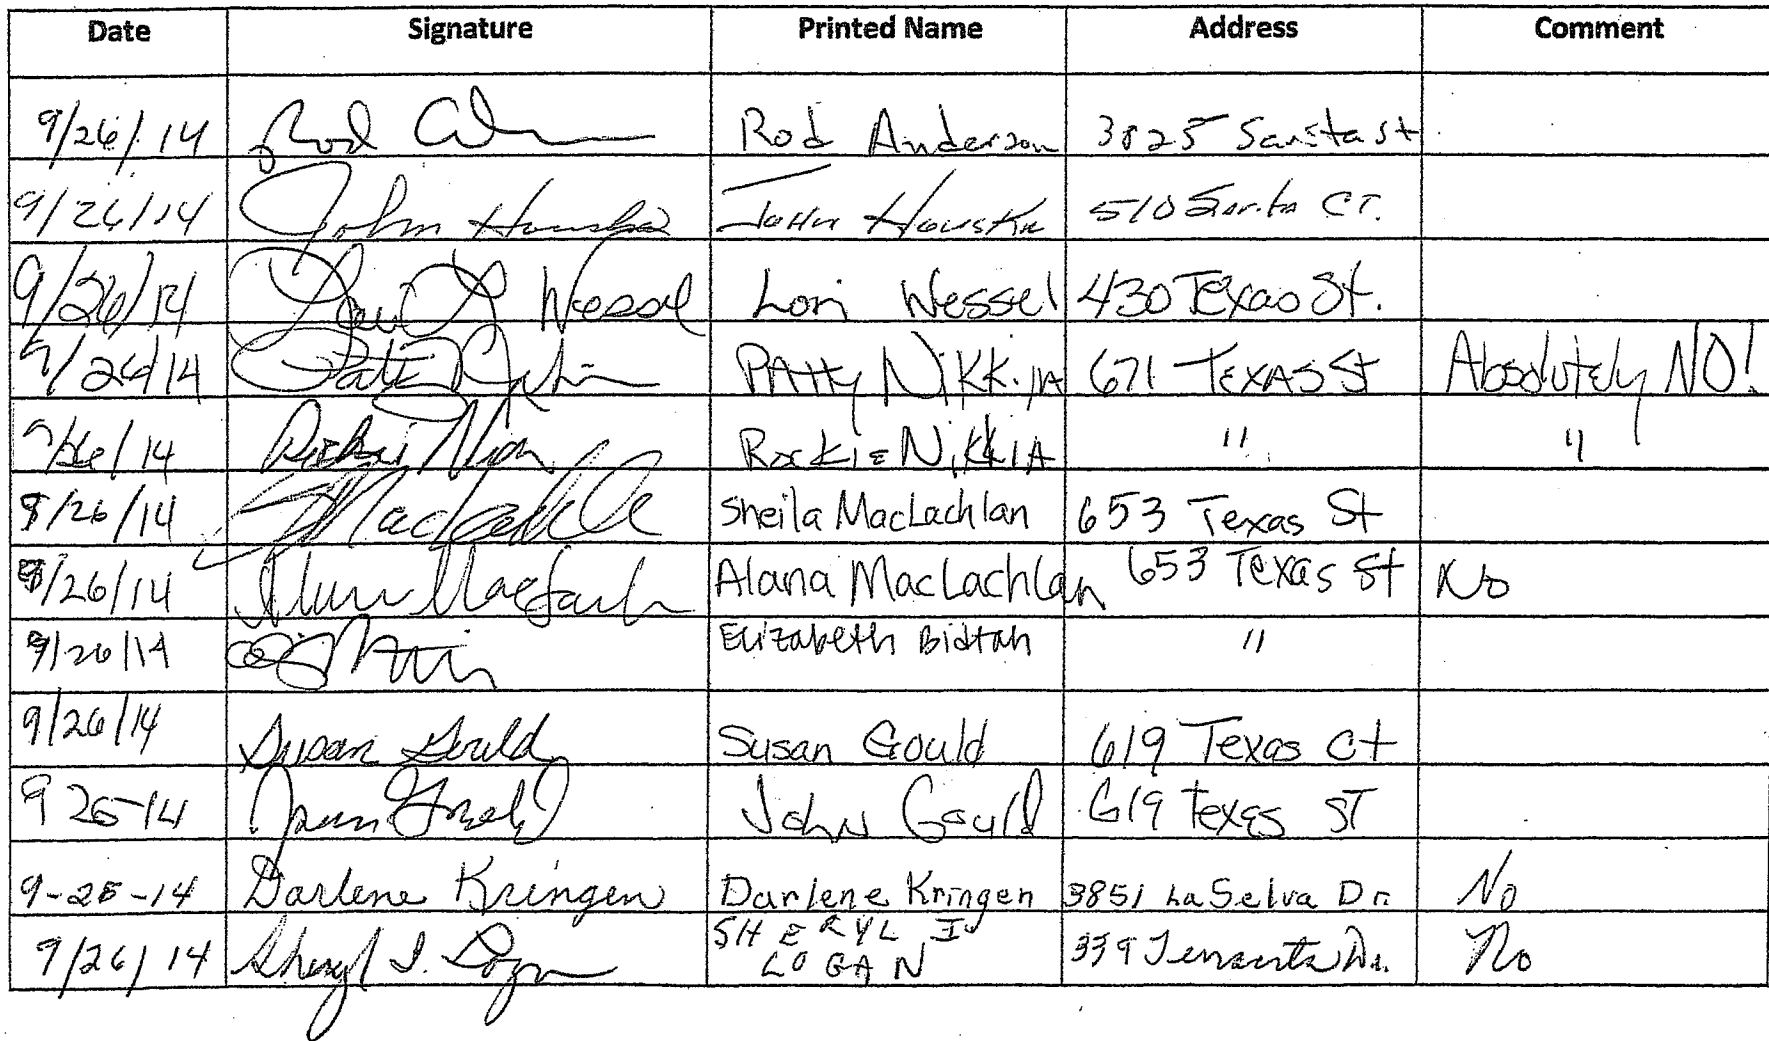 Date Signature Printed Name Address Comment
9/26/14 Rod Rod Anderson 3825 Sarita St
9/26/14 John Houska John Houska 510 Sarita CT.
9/26/14 Lori L Wessel Lori Wessel 430 Texas St.
9/26/14 Patty PAtty NiKKilA 671 TEXAS St Absolutely NO!
9/26/14 RockiE NiKKilA " "
9/26/14 S MacLachlan Sheila MacLachlan 653 Texas St
9/26/14 Alana MacLachlan Alana MacLachlan 653 Texas St No
9/26/14 Elizabeth Bidtah "
9/26/14 Susan Gould Susan Gould 619 Texas Ct
9 26-14 John Gould John Gould 619 Texas ST
9-26-14 Darlene Kringen Darlene Kringen 3851 La Selva Dr. No
9/26/14 Sheryl I. Logan SHERYL I 339 Dr. No
LOGAN